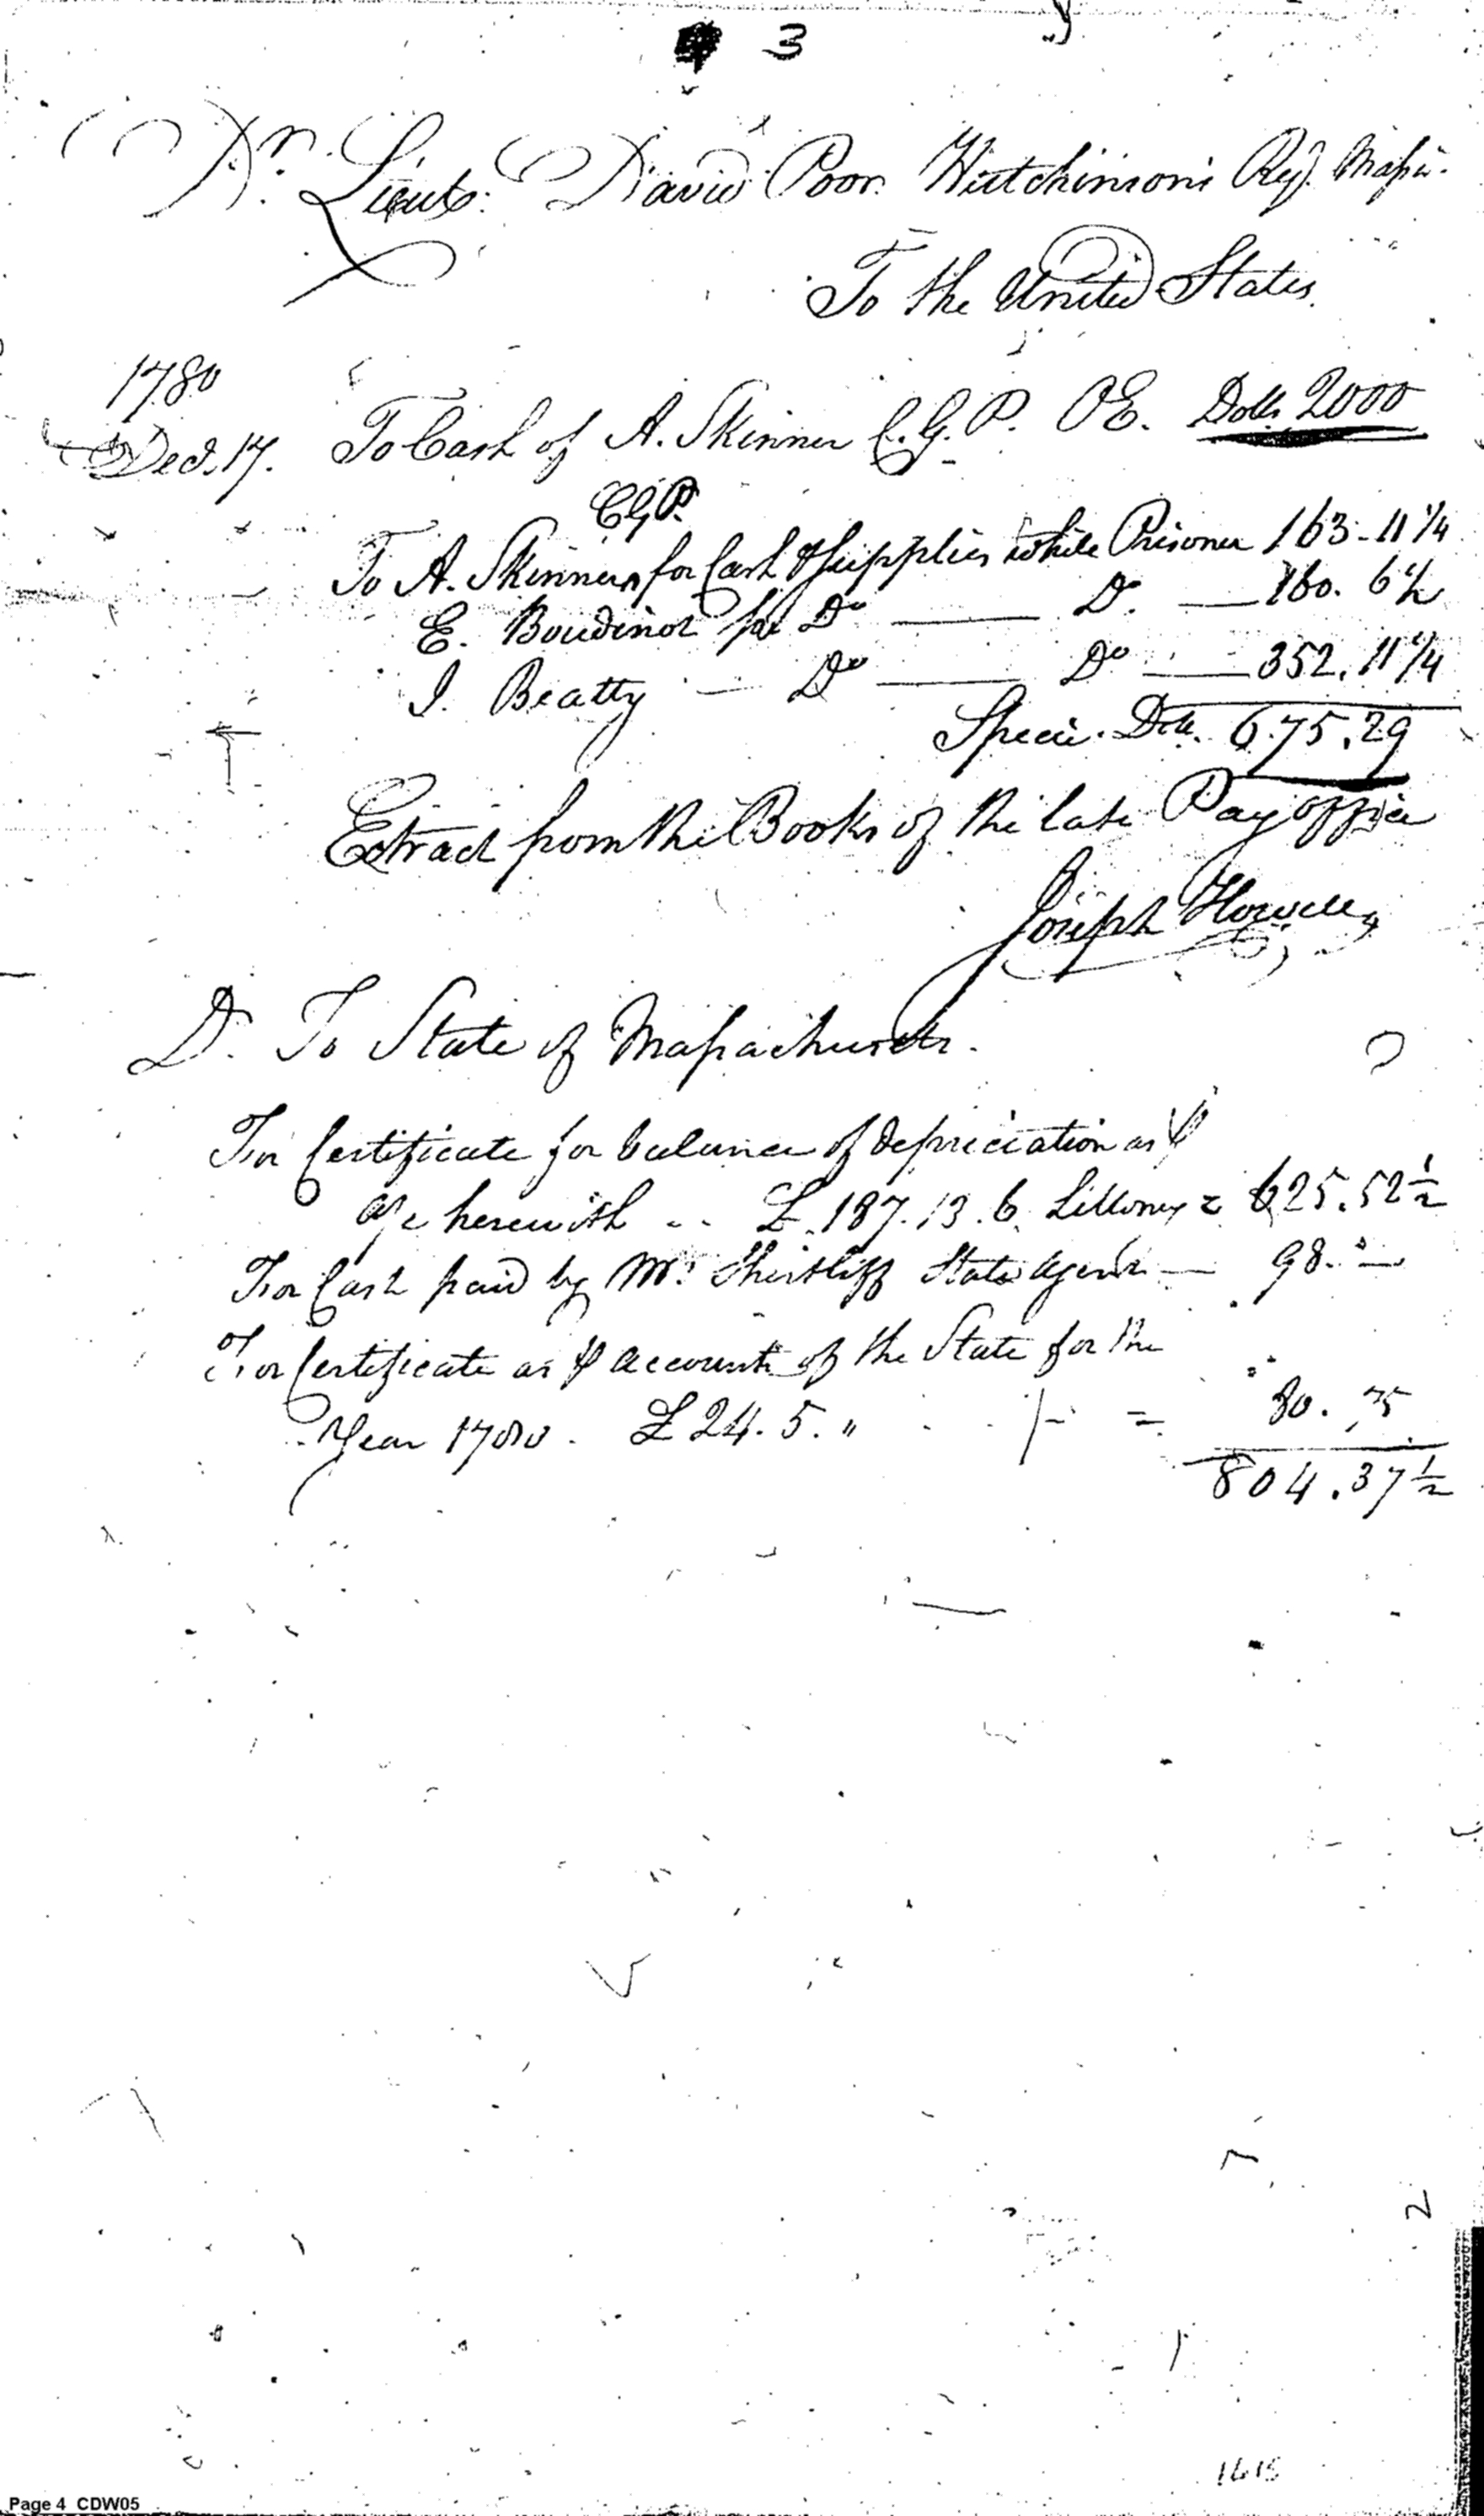 3
Dr. Lieut. David Poor Hutchinson's Regt. Massa.
To the United States
1780
Decr. 17. To Cash of A. Skinner C.G.P. OE. Dolls. 2000
CGP.
To A. Skinner for Cash & Supplies while Prisoner 163-11 1/4
E. Boudinot for Do Do. 160. 6 1/2
J. Beatty Do Do 352. 11 1/4
Specie. Dolls. 675.29
Extract from the Books of the late Pay office
Joseph Howell
Dr. To State of Massachusetts.
For Certificate for balance of depreciation as ⅌
a/c herewith .. £.187.13.6 = 625.52 1/2
For Cash paid by Mr. Shirtliff State Agent — 98. "—
For Certificate as ⅌ accounts of the State for the
Year 1780. £24.5." = 80. 75
804.37 1/2
2
1615
Page 4 CDW05